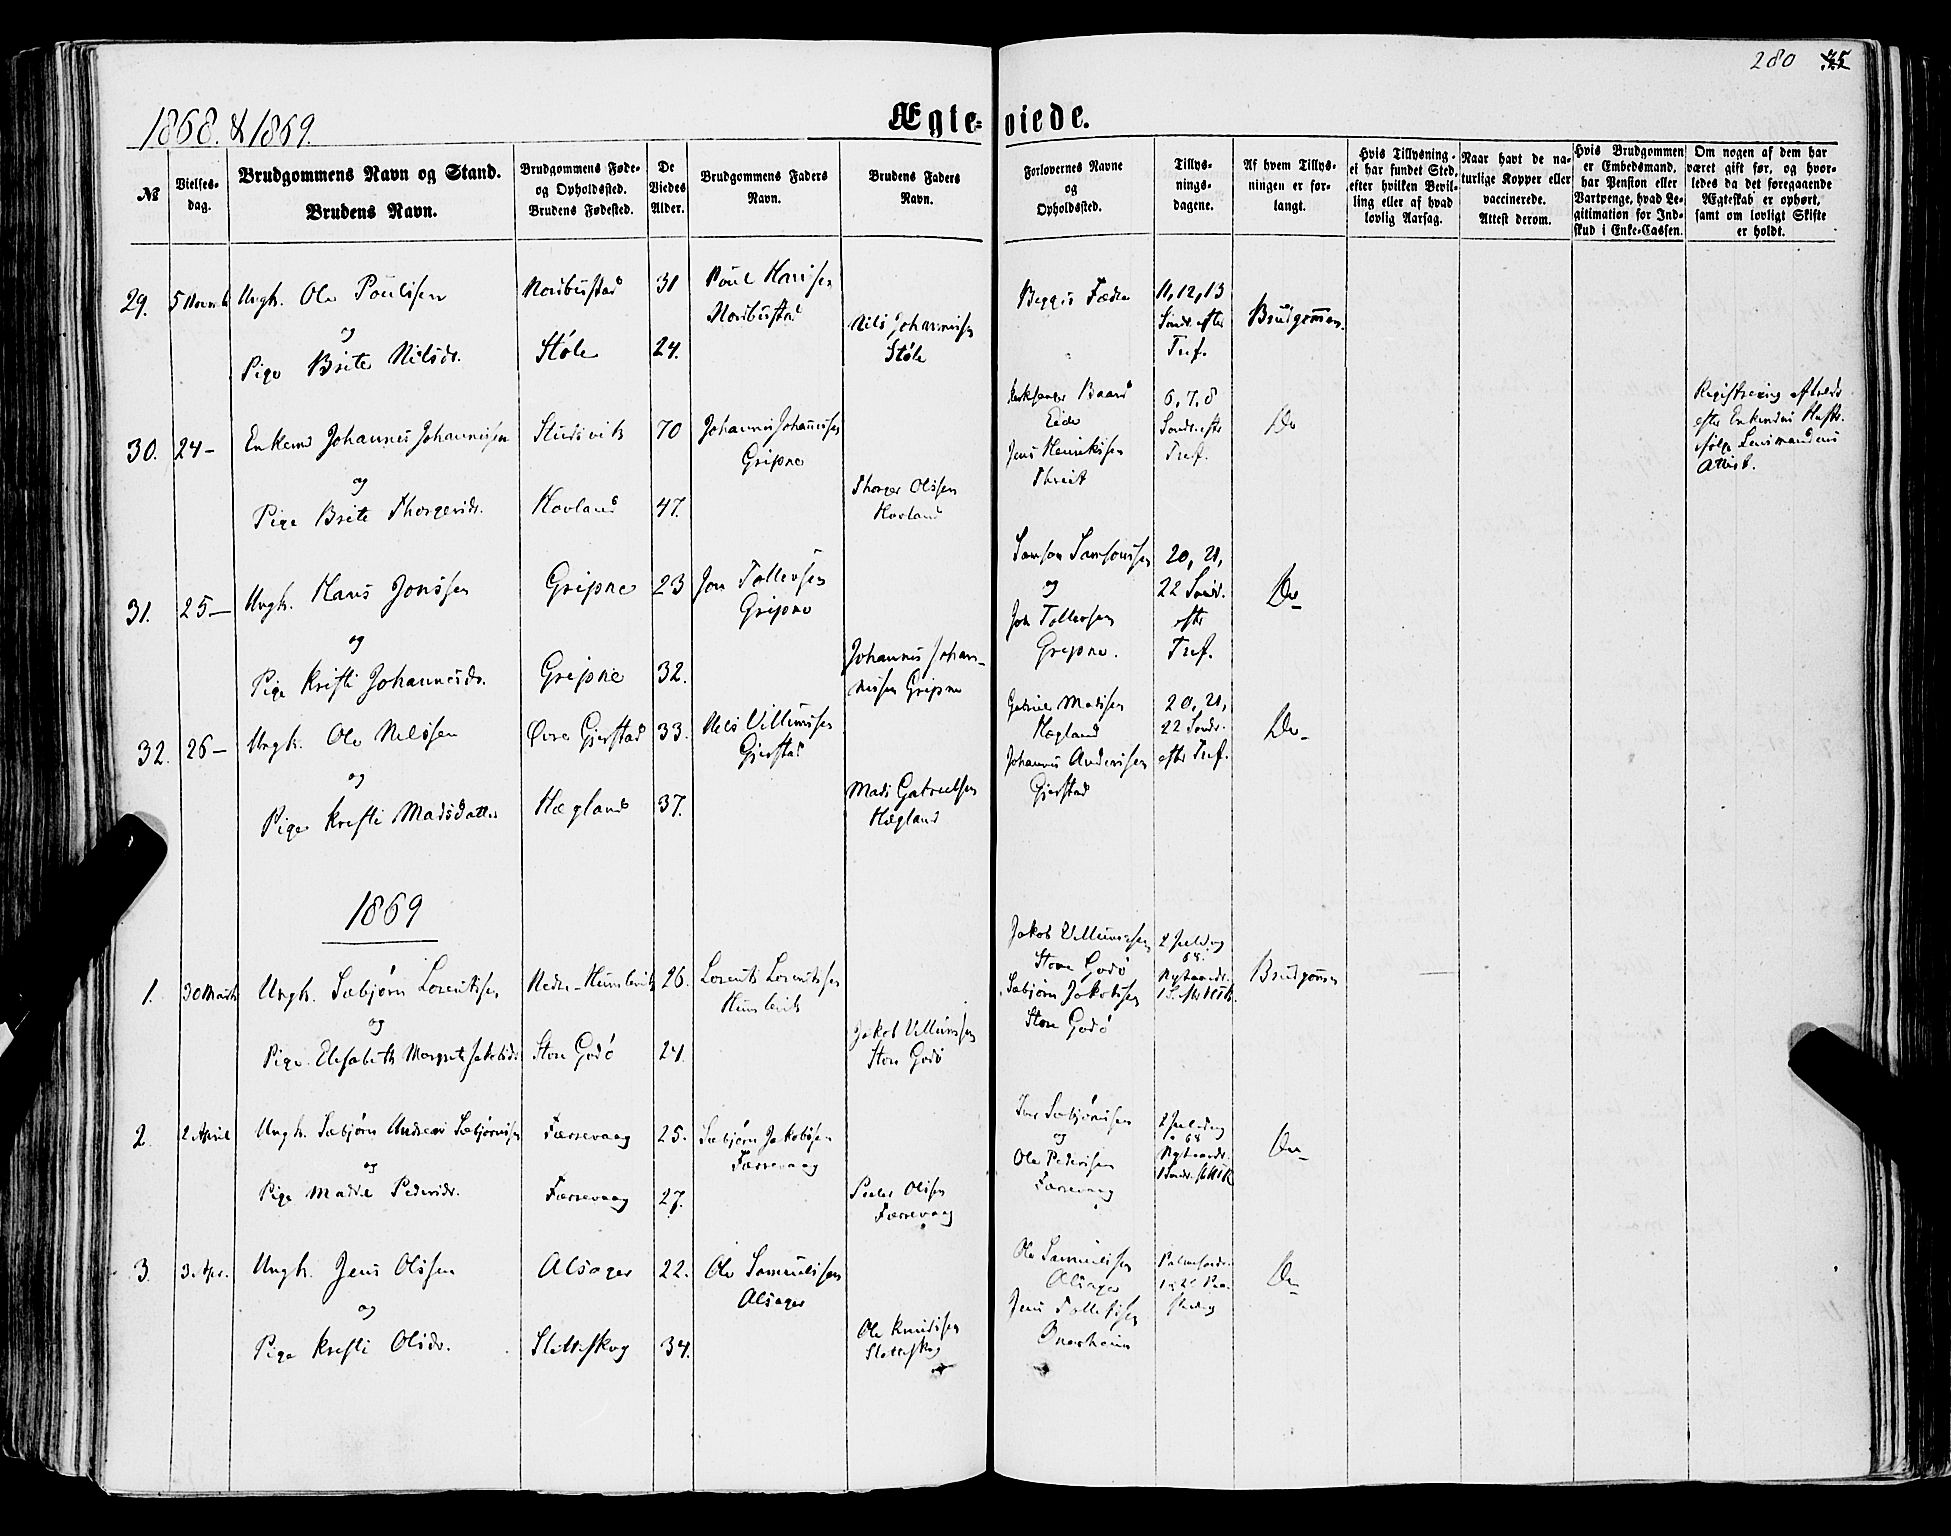 280
1868. & 1869.
Ægte-viede.
№
Vielses-
dag.
Brudgommens Navn og Stand.
Brudens Navn.
Brudgommens Føde-
og Opholdssted.
Brudens Fødested.
De
Viedes
Alder.
Brudgommens Faders
Navn.
Brudens Faders
Navn.
Forlovernes Navne
og
Opholdssted.
Tillys-
nings-
dagene.
Af hvem Tillys-
ningen er for-
langt.
Hvis Tillysning
ei har fundet Sted,
efter hvilken Bevil-
ling eller af hvad
lovlig Aarsag.
Naar havt de na-
turlige Kopper eller
vaccinerede.
Attest derom.
Hvis Brudgommen
er Embedsmand,
har Pension eller
Vartpenge, hvad Le-
gitimation for Ind-
skud i Enke-Cassen.
Om nogen af dem har
været gift før, og hvor-
ledes da det foregaaende
Ægteskab er ophørt,
samt om lovligt Skifte
er holdt.
29. 5 Novemb Ungk. Ole Poulsen
og
Pige Brite Nilsdr.
Støle
31
24.
Nils Johannessen
Støle
Begges Fædre
11, 12, 13
Sønd. efter
Tref.
Brudgommen.
30. 24- Enkemd Johannes Johannessen
og
Pige Brite Thorgersdr.
Hovland
70
47.
Johannes Johannessen
Gripne
Thorger Olssen
Hovland
Baard
Eide
Jens Henrikssen
6, 7, 8
Sønd. eftr
Tref.
Do
Registrering
efter Enkemdens
Lensmandens
Attest.
31. 25- Ungk. Hans Jonssen
og
Pige Kristi Johannesdr.
Gripne
Gripne
23
32.
Jon Tollevsen
Gripne
Johannes Johan-
nessen Gripne
Samson Samsonssen
og
Jon Tollevsen
Gripne.
20, 21,
22 Sønd.
eftr
Tref.
Do-
32. 26- Ungk. Ole Nilssen
og
Pige Kristi Madsdatter
Øvre Gjerstad
Hægland
33.
37.
Nils Villumssen
Gjerstad
Mads Gabrielsen
Hægland
Gabriel Madssen
Hægland
Johannes Anderssen
Gjerstad
20, 21,
22 Sønd.
eftr Tref.
Do-
1869
1. 30 Marts Ungk. Sæbjørn Lorentssen
og
Pige Elisabeth Margrete Jakobsdr
Nedre-Humlevik
Store Godø
26.
24.
Lorents Lorentssen
Humlevik
Jakob Villumssen
Store Godø
Jakob Villumssen
Store Godø
Sæbjørn Jakobssen
Store Godø
2 Juledag
68.
Nytaarsdr.
Brudgommen
2. 2 April Ungk. Sæbjørn Andreas Sæbjørnssen
og
Pige Pedersdr.
Færrevaag
Færrevaag
25.
27.
Sæbjørn Jakobssen
Færrevaag
Peder Olssen
Færrevaag
Sæbjørnssen
og
Ole Pederssen
Færrevaag
2 Juledag
68
Nytaarsdr.
Do-
3. 3. Apr. Ungk. Jens Olssen
og
Pige Kristi Olsdr.
Alsager
Sletteskog
22.
34.
Ole Samuelssen
Alsager
Ole Knudssen
Sletteskog
Ole Samuelssen
Alsager
Jens Tollefssen
Onarheim
Do-